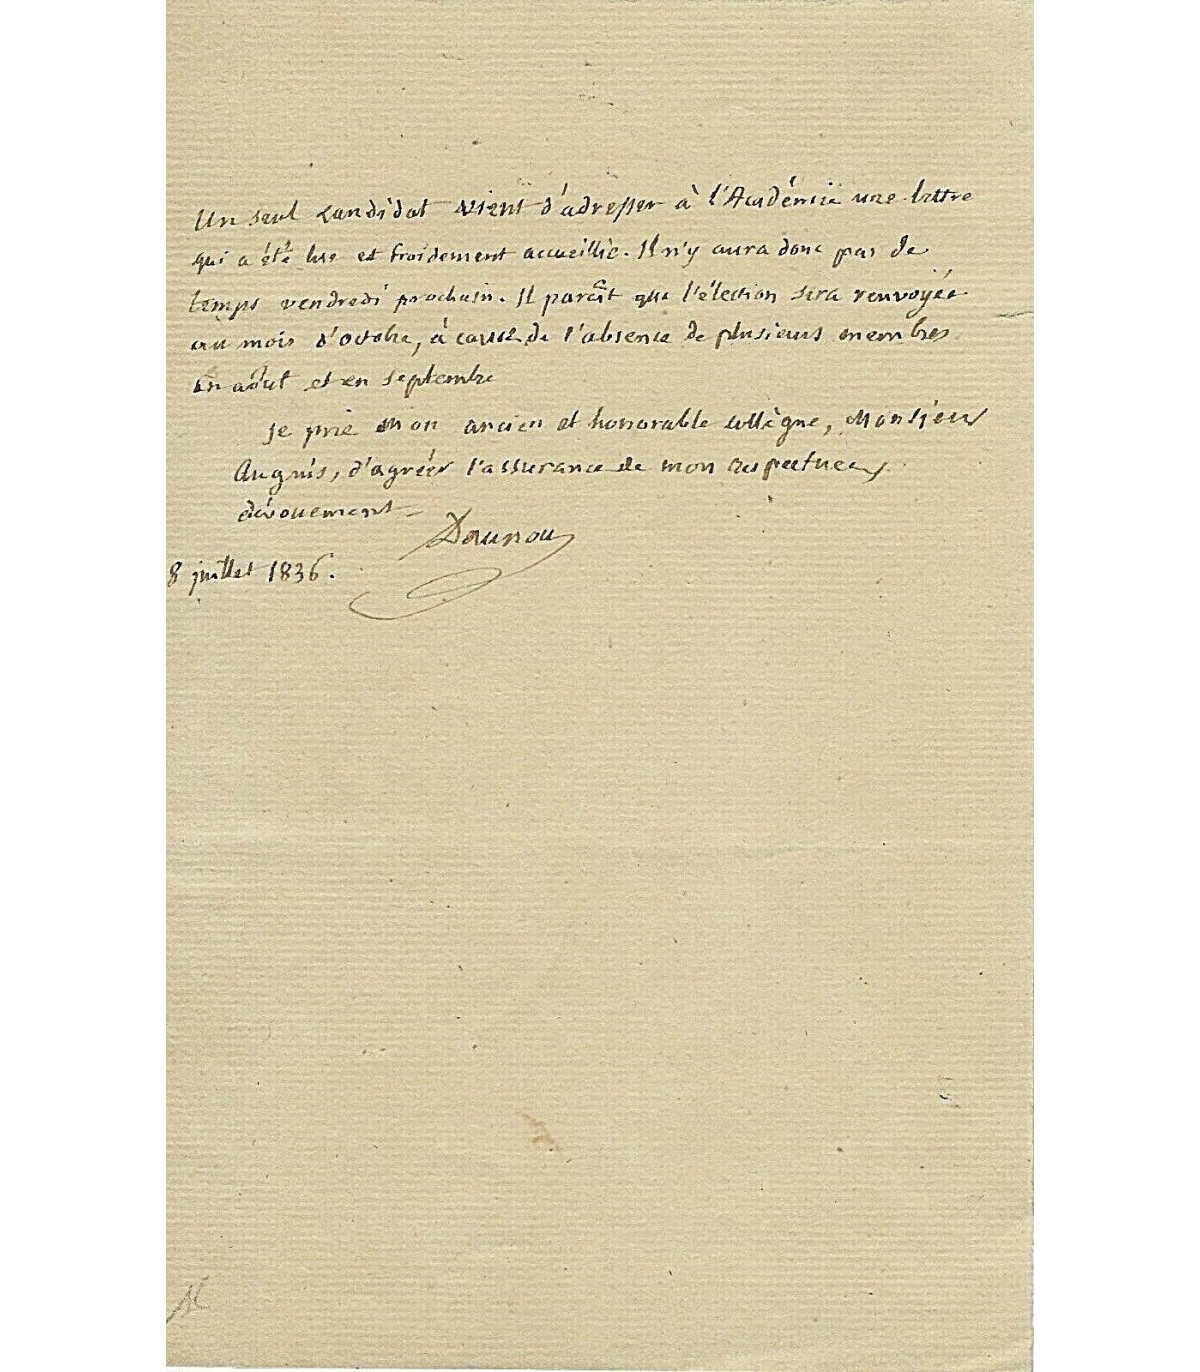 Un seul candidat vient d'adresser à l'Académie une lettre
qui a été lue et froidement accueillie. Il n'y aura donc pas de
temps vendredi prochain. Il paraît que l'élection sera renvoyée
au mois d'octobre, à cause de l'absence de plusieurs membres
en août et en septembre
Je prie mon ancien et honorable collègue, Monsieur
Auguis, d'agréer l'assurance de mon respectueux
dévouement
Daunou
8 juillet 1836.